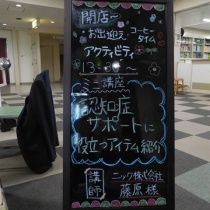 開店
お出迎え コーヒー
タイム
アクティビティ
13:
ミニ講座
認知症
サポートに
役立つアイテム紹介
講師
ニック株式会社
藤原 様